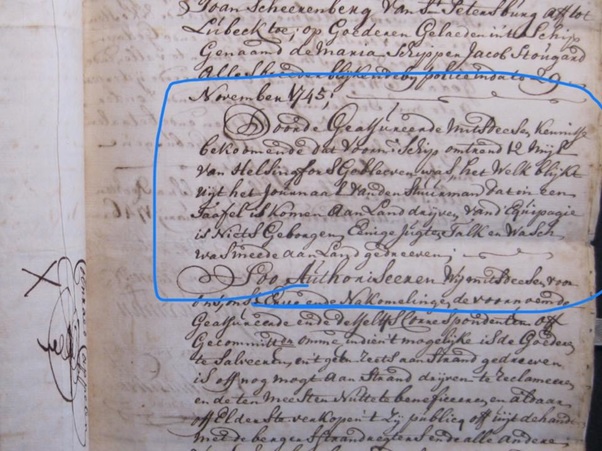 Joan Scheerenberg Van St Petersburg aff tot
Lubeck toe, op Goederen Gelaeden in het Schip
Genaamd de Maria Schipper Jacob Stougard
Alles breeder blijkende bij police monto 29
November 1745,
Door de Geassureerde mits deesen kennisse
bekoomende dat voorn Schip omtrend 12 Mijl
van Helsingfors Gebleeven was, het Welk blijkt
uijt het Journaal van den Stuurman dat in een
is komen aan Land drijven, van d' Equipagie
is Niets Geborgen, Eenige Jugten Talk en Wasch
was meede aan Land gedreeven;
Soo Authoriseeren Wij mits deesen, voor
ons, onse Erven ende Nakomelingen de voornoemde
Geassureerde ende desselfs Correspondenten off
Gecommitt en omme indien 't mogelijk is de Goederen
te Salveeren, en 't geen reets aan Strand gedreeven
is off nog mogt aan Strand drijven te reclameeren
en de ten meesten Nutte te beneficeeren, en aldaar
off Elders te verkopen 't Zij publicq off uijt de hand
met de bergers Strandregters ende alle Andere